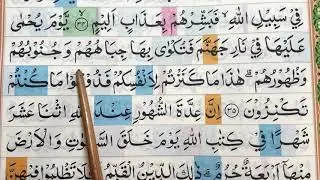 فِي سَبِيلِ اللّٰهِ فَبَشِّرْهُمْ بِعَذَابٍ اَلِيْمٍ ۝٣٤ يَّوْمَ يُحْمٰى
عَلَيْهَا فِيْ نَارِ جَهَنَّمَ فَتُكْوٰى بِهَا جِبَاهُهُمْ وَجُنُوْبُهُمْ
وَظُهُوْرُهُمْ هٰذَا مَا كَنَزْتُمْ لِاَنْفُسِكُمْ فَذُوْقُوْا مَا كُنْتُمْ
تَكْنِزُوْنَ ۝٣٥ اِنَّ عِدَّةَ الشُّهُوْرِ عِنْدَ اللّٰهِ اثْنَا عَشَرَ
شَهْرًا فِيْ كِتٰبِ اللّٰهِ يَوْمَ خَلَقَ السَّمٰوٰتِ وَالْاَرْضَ
مِنْهَآ اَرْبَعَةٌ حُرُمٌ ذٰلِكَ الدِّيْنُ الْقَيِّمُ فَلَا تَظْلِمُوْا فِيْهِنَّ